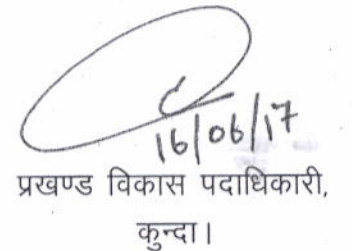 16/06/17
प्रखण्ड विकास पदाधिकारी,
कुन्दा।